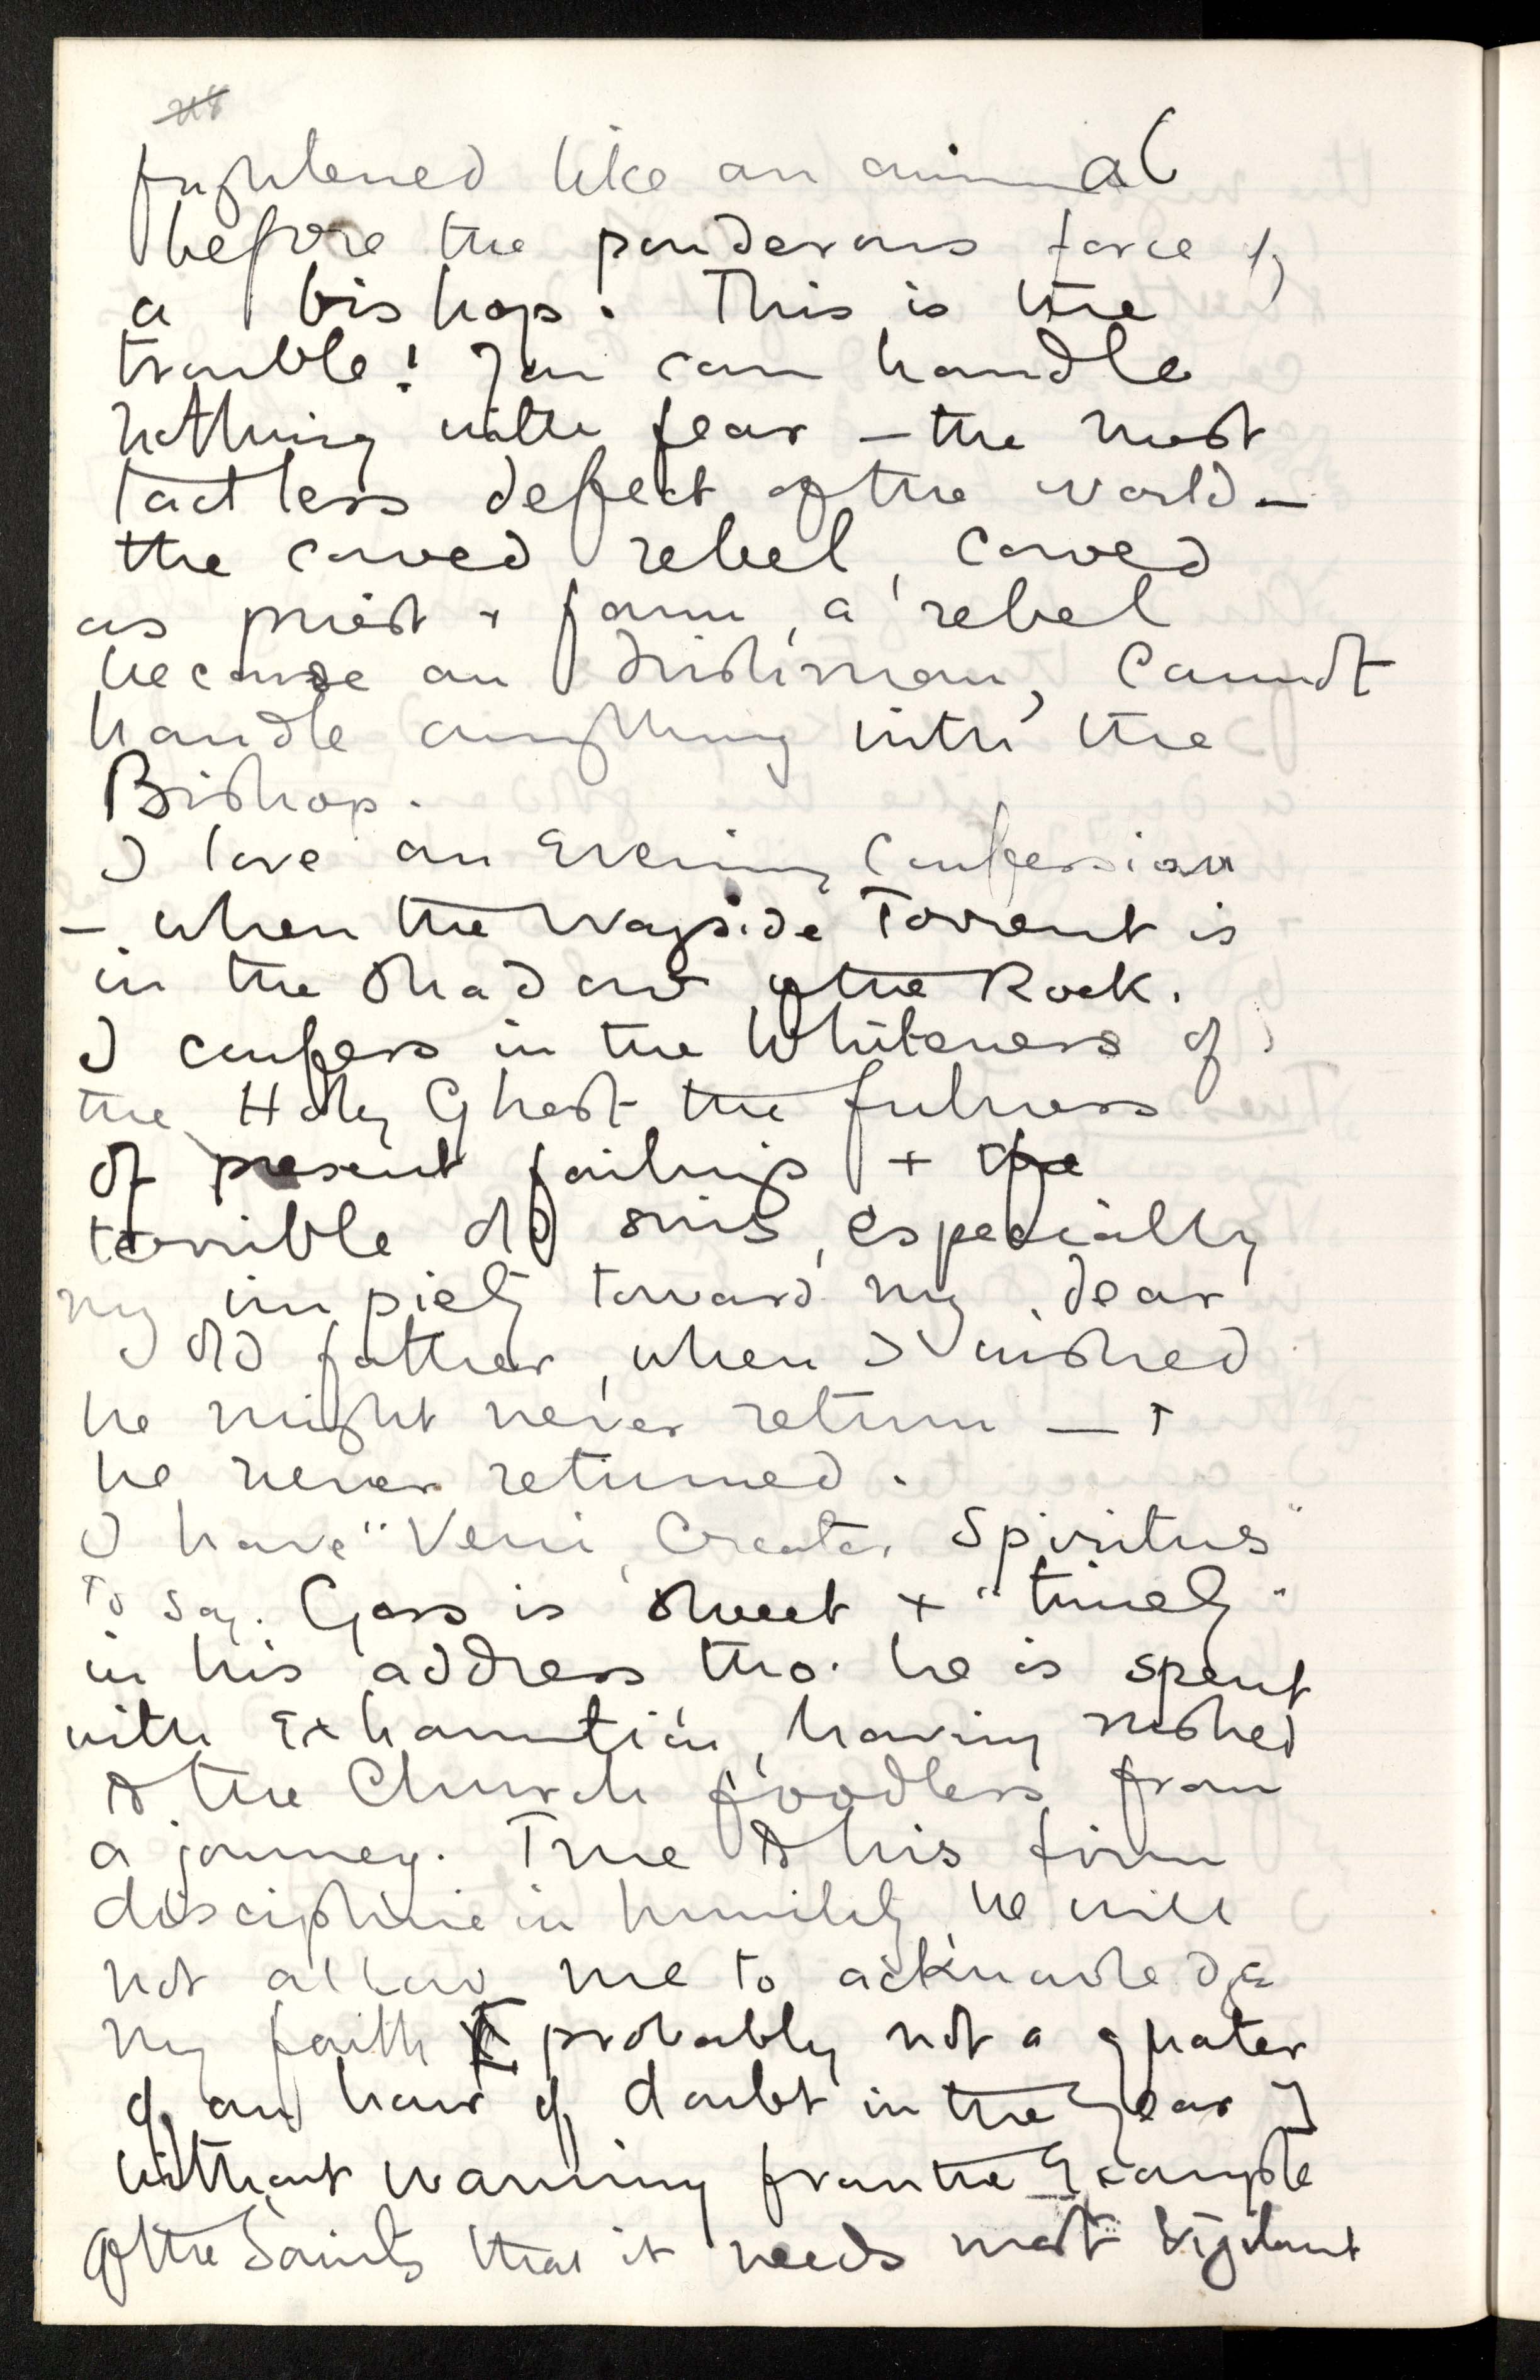 frightened like an animal
before the ponderous force of
a bishop. This is the
trouble! You can handle
nothing with fear — the most
tactless defect of the world —
the cowed rebel, cowed
as priest + farm, a rebel
because an Irishman, cannot
handle anything with the
Bishop.
I love an Evening Confession
— when the Wayside Torrent is
in the Shadow of the Rock.
I confess in the Whiteness of
the Holy Ghost the fulness
of present failings + the
terrible old sins, especially
my impiety toward my dear
old father, when I wished
he might never return — +
he never returned.
I have "Veni, Creator Spiritus"
to say. Goss is sweet + "timely"
in his address tho. he is spent
with Exhaustion, having rushed
to the Church foodless from
a journey. True to his firm
discipline in humility, he will
not allow me to acknowledge
my faith [probably not a quater
of an hour of doubt in the Year]
without warning from the Example
of the Saints that it needs most vigilant